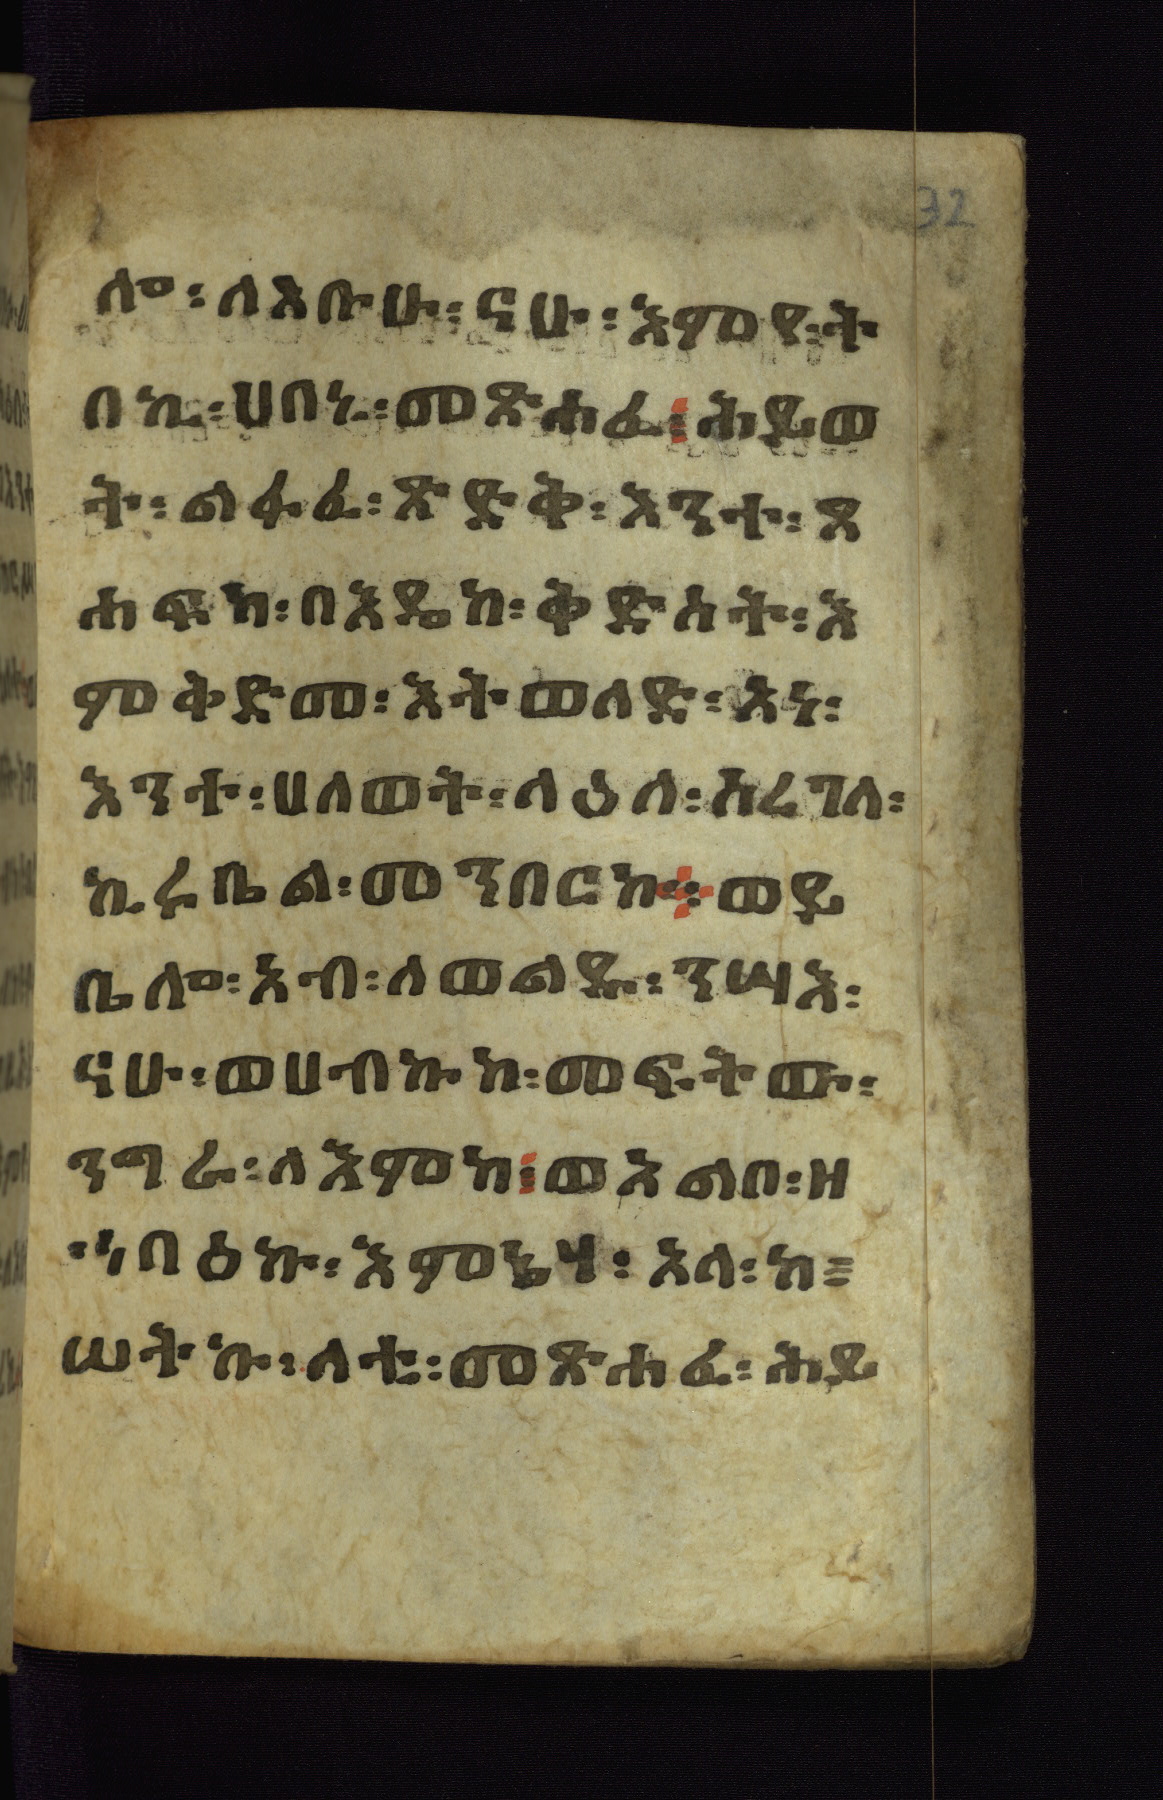 32
ሎ፡ለእቡሁ፡ናሁ፡እምየ፡ት
በኪ፡ሀበኒ፡መጽሐፈ፡ሕይወ
ት፡ልፋፈ፡ጽድቅ፡እንተ፡ጸ
ሐፍከ፡በእዴከ፡ቅድስት፡እ
ምቅድመ፡እትወለድ፡አነ፡
እንተ፡ሀለወት፡ላዕለ፡ሰረገላ፡
ኪሩቤል፡መንበርከ፡ወይ
ቤሎ፡አብ፡ለወልዱ፡ንሣእ፡
ናሁ፡ወሀብኩከ፡መፍትው፡
ንግራ፡ለእምከ፡ወአልቦ፡ዘ
ኀባዕኩ፡እምኔሃ፡አላ፡ከ
ሠትኩ፡ላቲ፡መጽሐፈ፡ሕይ